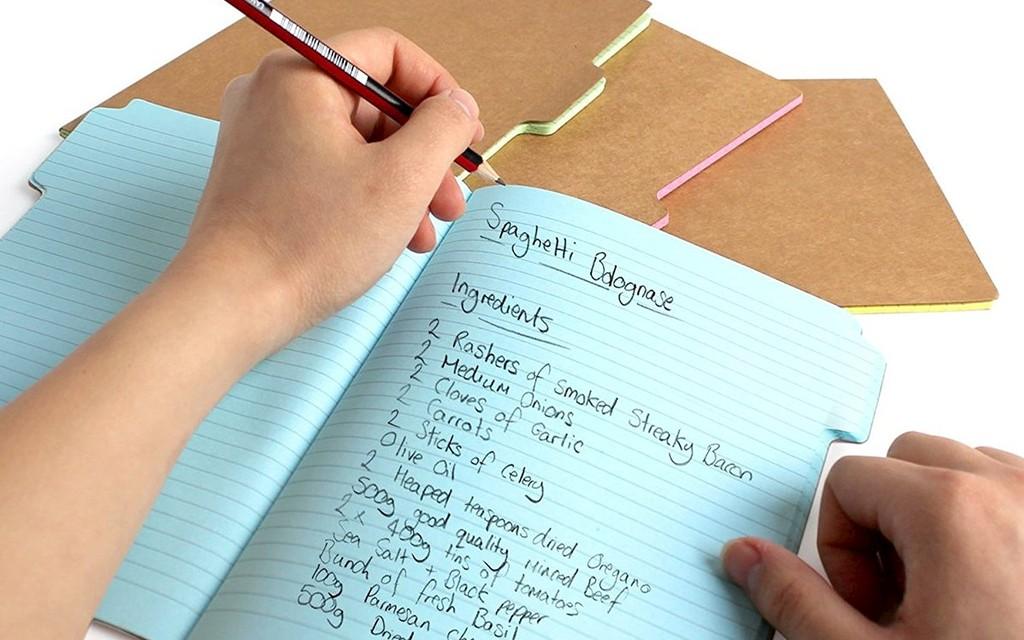 Spaghetti Bolognase
Ingredients
2 Rashers of smoked Streaky Bacon
2 Medium Onions
2 Cloves of Garlic
2 Carrots
2 Sticks of Celery
Olive Oil
2 Heaped teaspoons dried Oregano
500g good quality Minced Beef
2 x 400g tins of tomatoes
Sea Salt + Black pepper
Bunch of fresh Basil
100g Parmesan
500g Dried